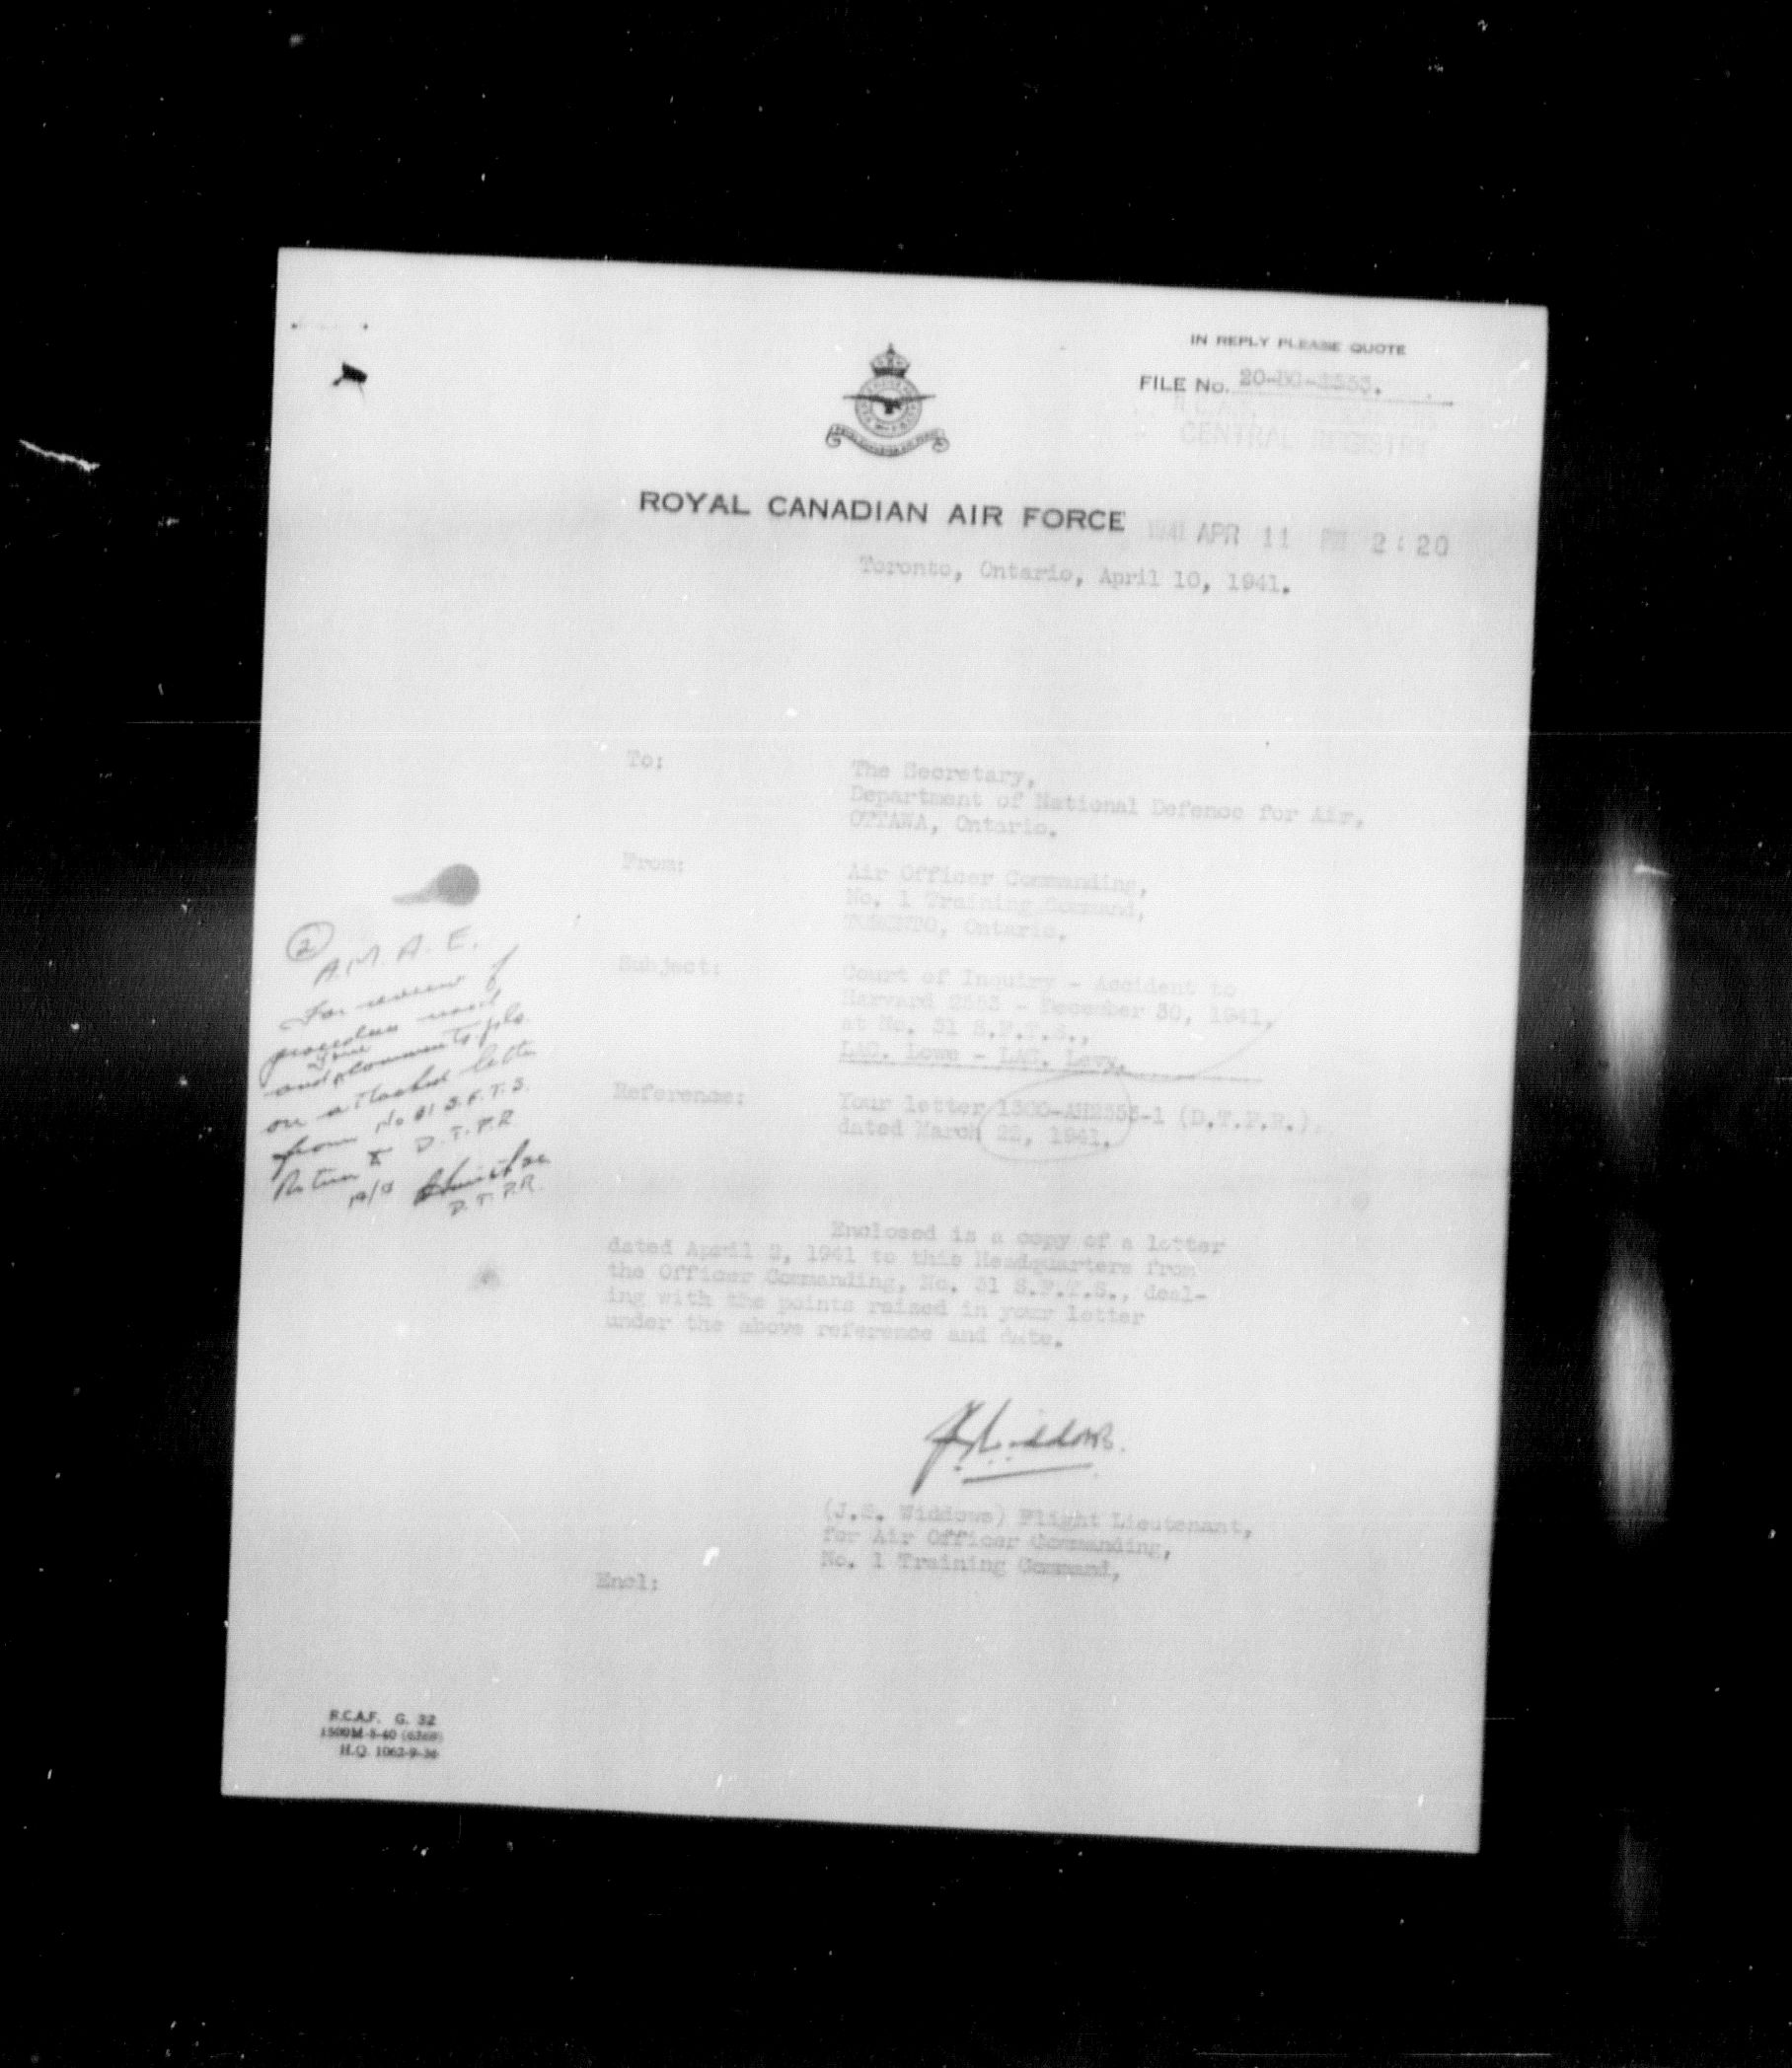 IN REPLY PLEASE QUOTE
FILE No.
CENTRAL REGISTRY
ROYAL CANADIAN AIR FORCE
1941 APR 11 PM 2:20
Toronto, Ontario, April 10, 1941.
To: The Secretary,
Department of National Defence for Air,
OTTAWA, Ontario.
From: Air Officer Commanding,
No. 1 Training Command,
TORONTO, Ontario.
Subject: Court of Inquiry - Accident to
Harvard 2553 - December 30, 1941,
at No. 31 S.F.T.S.,
LAC. Lowe - LAC. Levy.
Reference: Your letter 1300-AH2553-1 (D.T.P.R.).
dated March 22, 1941.
2
A.M.A.E.
For review of
procedure used
and your comments pls
on attached letter
from No 31 S.F.T.S.
Return to D.T.P.R
D.T.P.R.
Enclosed is a copy of a letter
dated April 8, 1941 to this Headquarters from
the Officer Commanding, No. 31 S.F.T.S., deal-
ing with the points raised in your letter
under the above reference and date.
(J.S. Widdows) Flight Lieutenant,
for Air Officer Commanding,
No. 1 Training Command,
Encl:
R.C.A.F. G. 32
1500M-5-40
H.Q. 1062-9-36